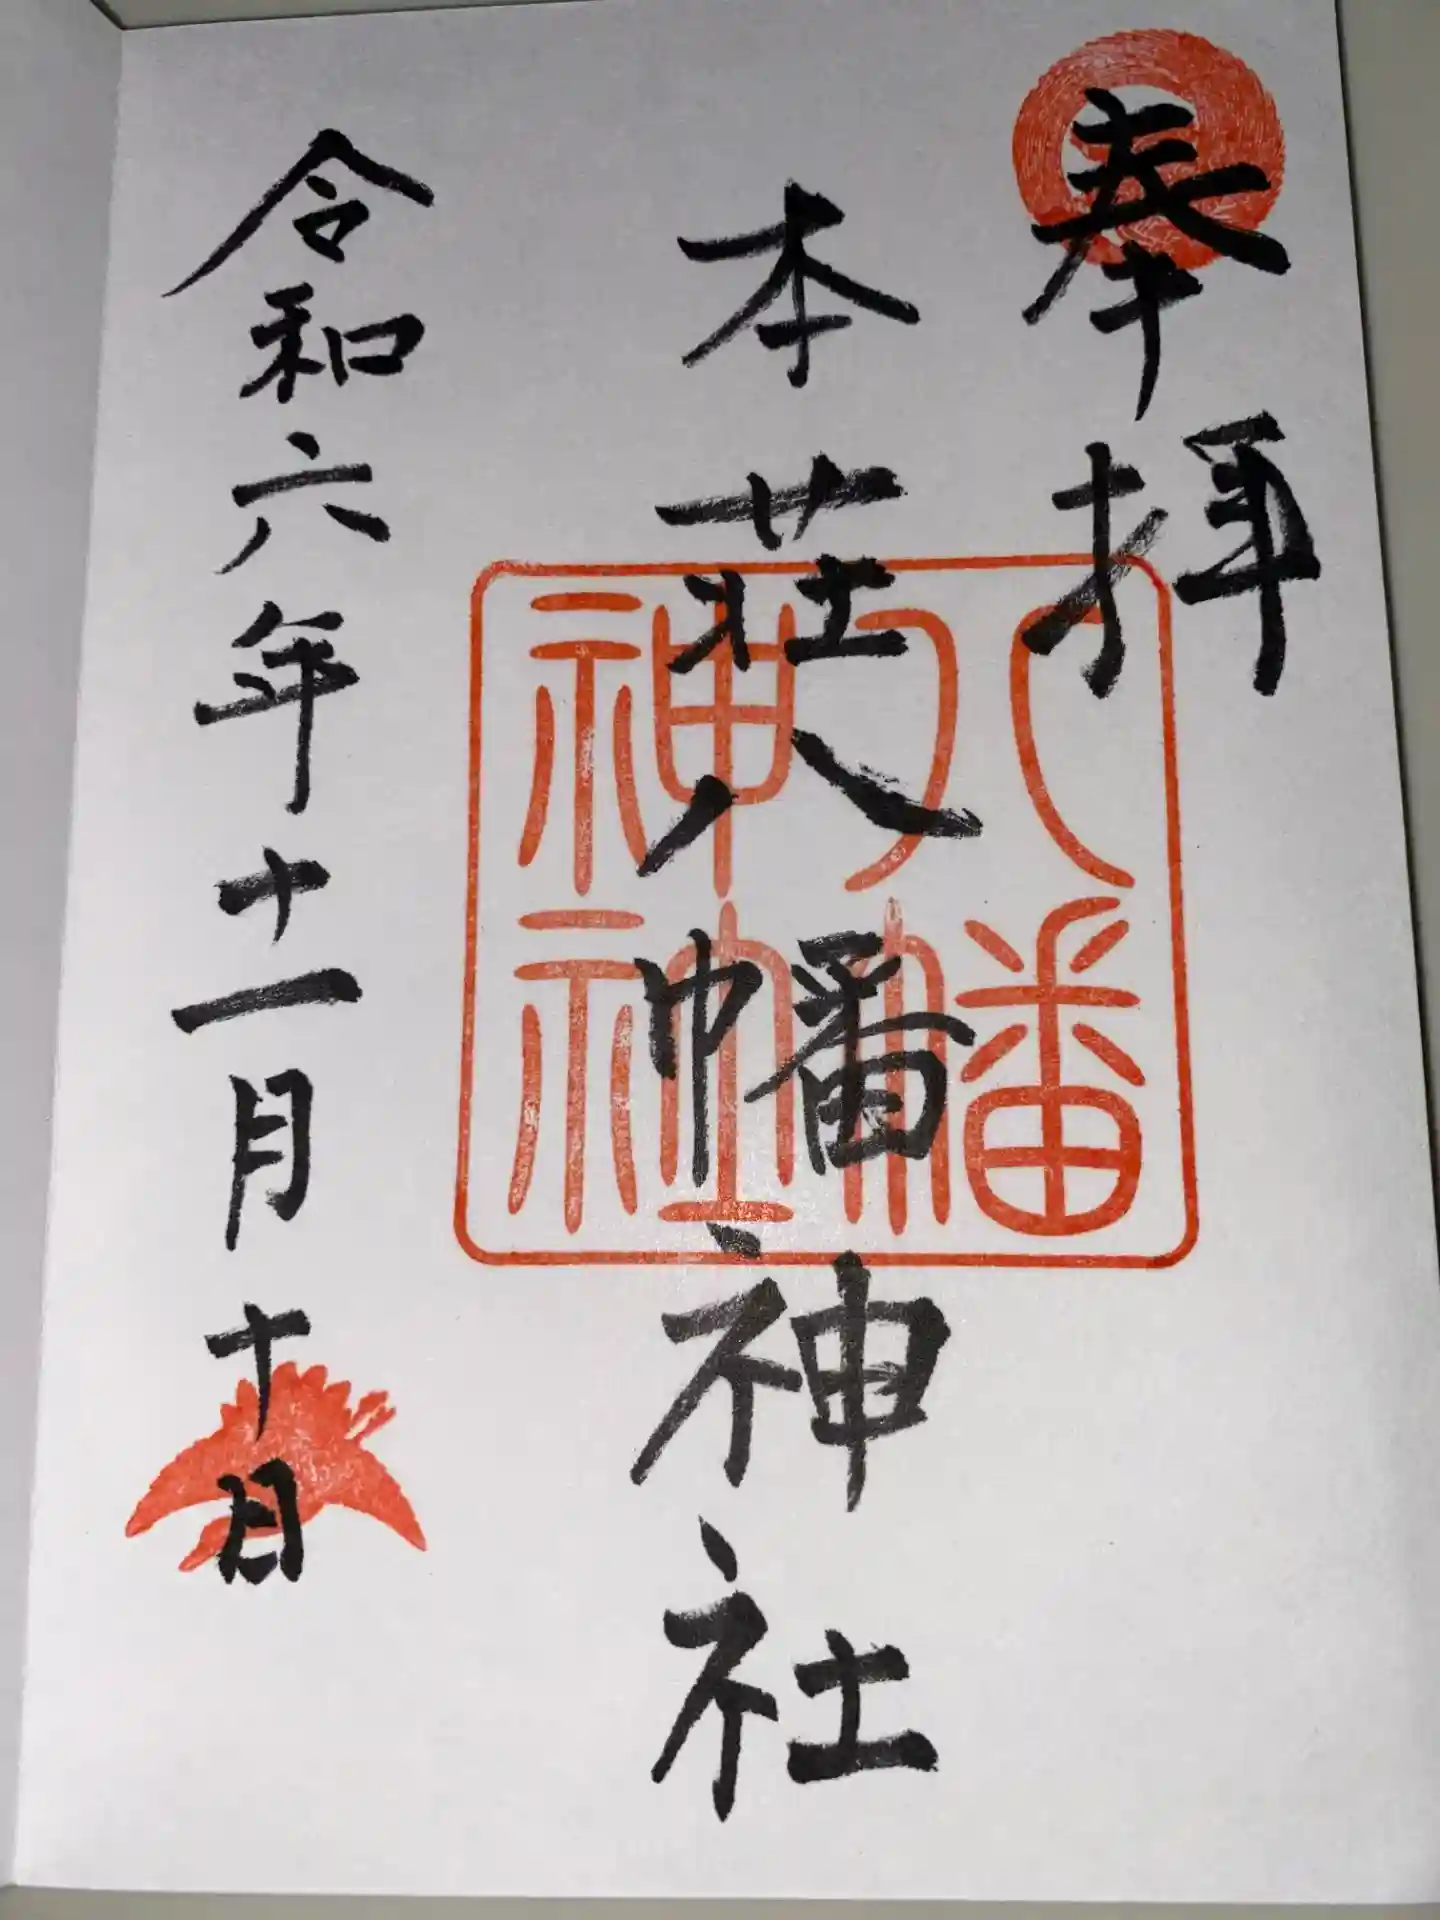 奉拝
本荘八幡神社
八幡
神社
令和六年十一月十日